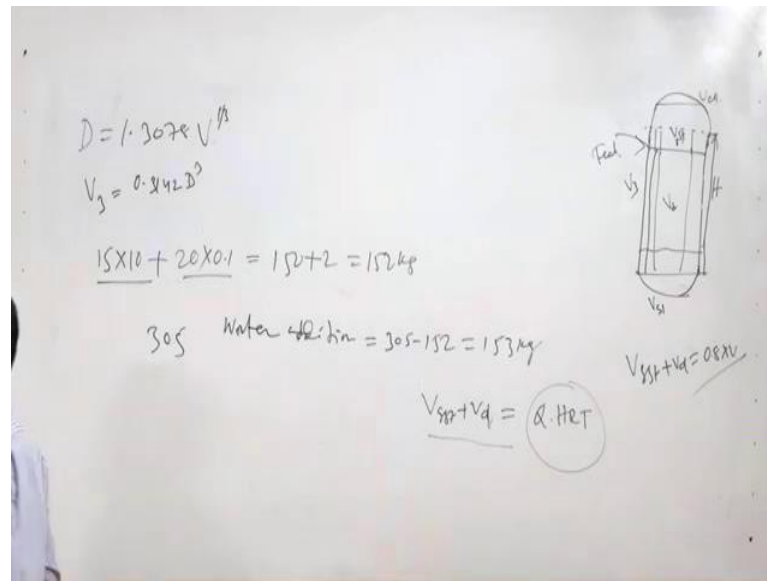 D = 1.3078 V^1/3
V3 = 0.3142 D^3
15X10 + 20X0.1 = 150+2 = 152 kg
305 Water addition = 305-152 = 153 kg
Vgst+Vd = Q.HRT
Feed
V3
H
Vgst+Vd = 0.8XV